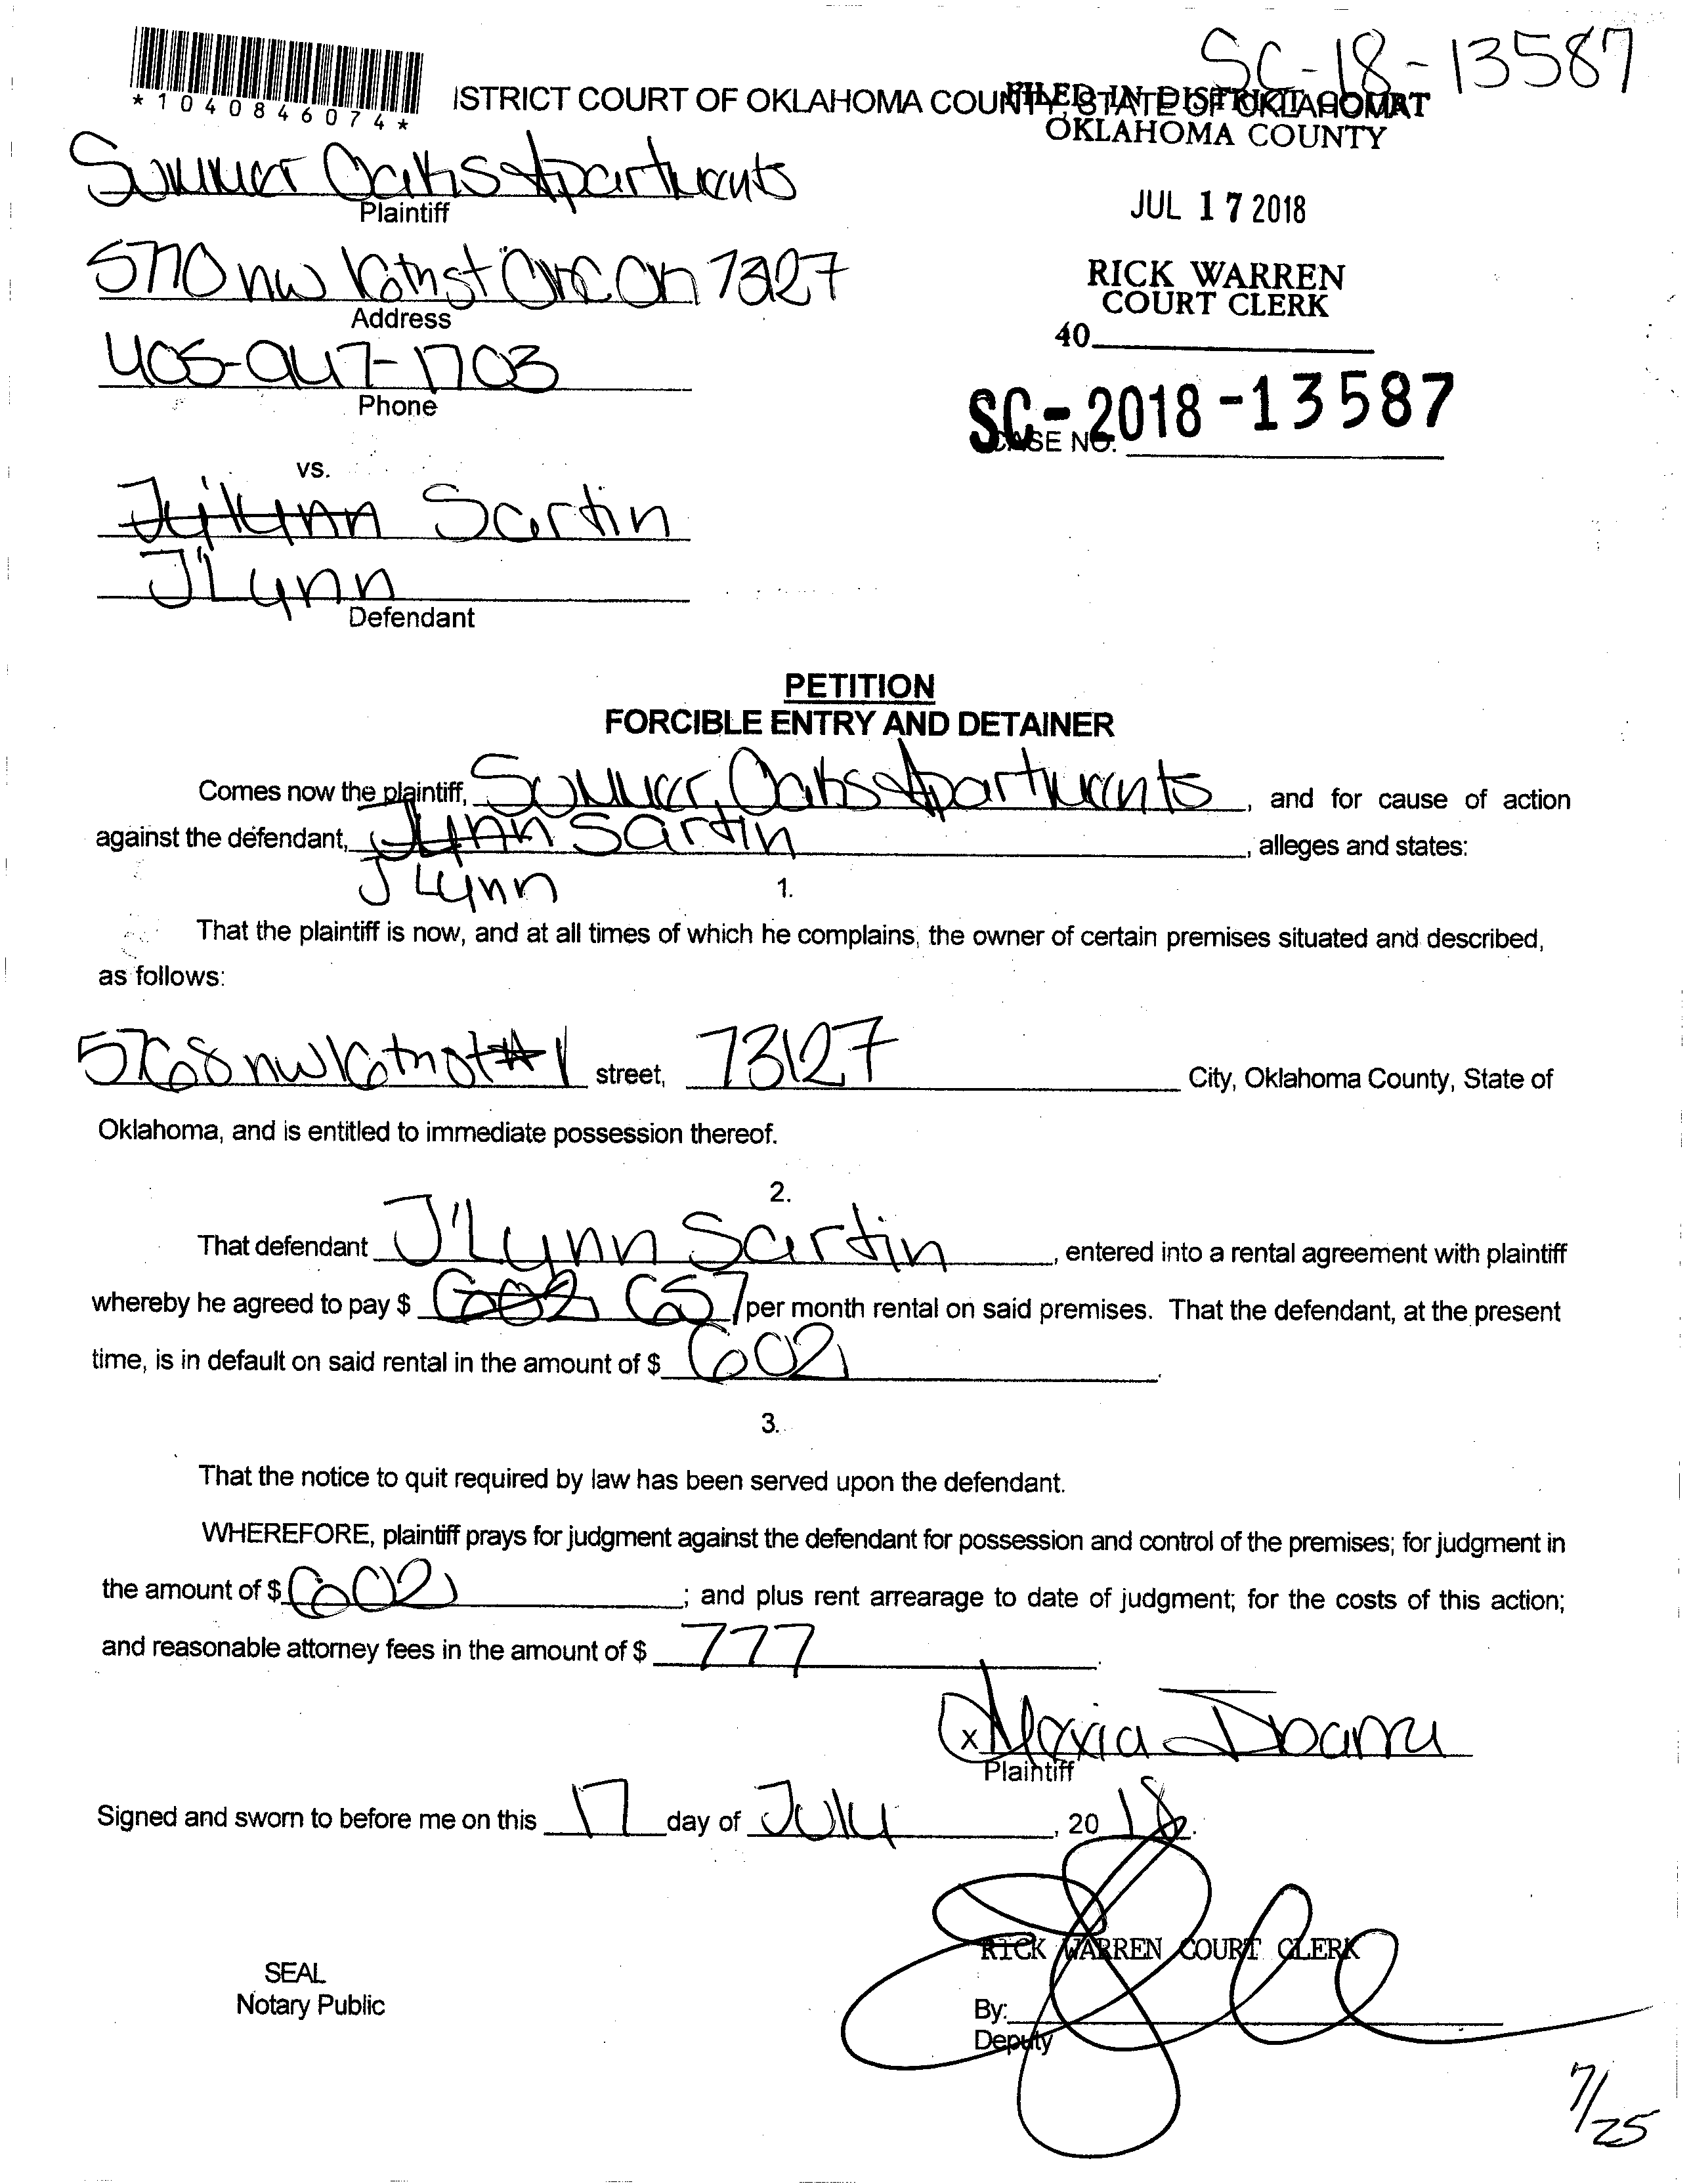 SC-18-13587
*1040846074*
ISTRICT COURT OF OKLAHOMA COUNTY, STATE OF OKLAHOMA
FILED IN DISTRICT COURT
OKLAHOMA COUNTY
Summer Oaks Apartments
Plaintiff
JUL 17 2018
5770 nw 16th st OKC OK 73127
Address
RICK WARREN
COURT CLERK
40
405-947-1703
Phone
SC-2018-13587
CASE NO.
vs.
Sartin
J'Lynn
Defendant
PETITION
FORCIBLE ENTRY AND DETAINER
Comes now the plaintiff, Summer Oaks Apartments, and for cause of action
against the defendant, Sartin, alleges and states:
J Lynn
1.
That the plaintiff is now, and at all times of which he complains, the owner of certain premises situated and described,
as follows:
5768 nw 16th st #1 street, 73127 City, Oklahoma County, State of
Oklahoma, and is entitled to immediate possession thereof.
2.
That defendant J'Lynn Sartin, entered into a rental agreement with plaintiff
whereby he agreed to pay $ 602 657 per month rental on said premises. That the defendant, at the present
time, is in default on said rental in the amount of $ 602.
3.
That the notice to quit required by law has been served upon the defendant.
WHEREFORE, plaintiff prays for judgment against the defendant for possession and control of the premises; for judgment in
the amount of $ 602; and plus rent arrearage to date of judgment; for the costs of this action;
and reasonable attorney fees in the amount of $ 777.
x Alexia
Plaintiff
Signed and sworn to before me on this 17 day of July, 2018.
RICK WARREN COURT CLERK
SEAL
Notary Public
By:
Deputy
7/25